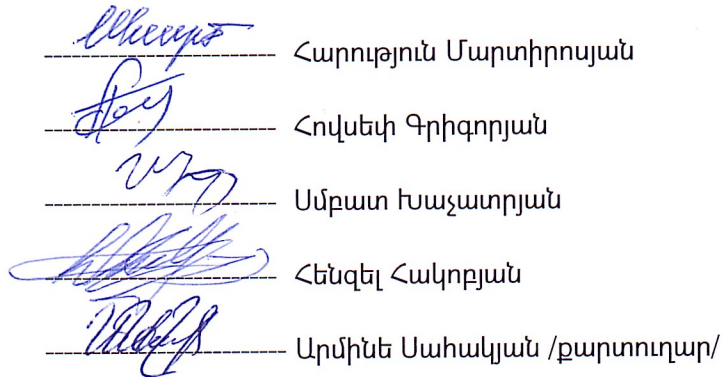 Հարություն Մարտիրոսյան
Հովսեփ Գրիգորյան
Սմբատ Խաչատրյան
Հենզել Հակոբյան
Արմինե Սահակյան /քարտուղար/